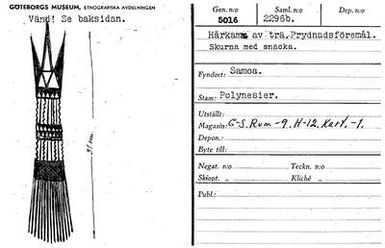 GÖTEBORGS MUSEUM, ETNOGRAFISKA AVDELNINGEN
Vänd! Se baksidan.
Gen. n:o
5016
Saml. n:o
2296b.
Dep. n:o
Hårkam av trä. Prydnadsföremål.
Skurna med snäcka.
Fyndort: Samoa.
Stam: Polynesier.
Utställt:
Magasin: C-S. Rum-9. H-12. Kart.-1.
Depon.:
Byte till:
Negat. n:o
Teckn. n:o
Skiopt. „
Kliché „
Publ.: